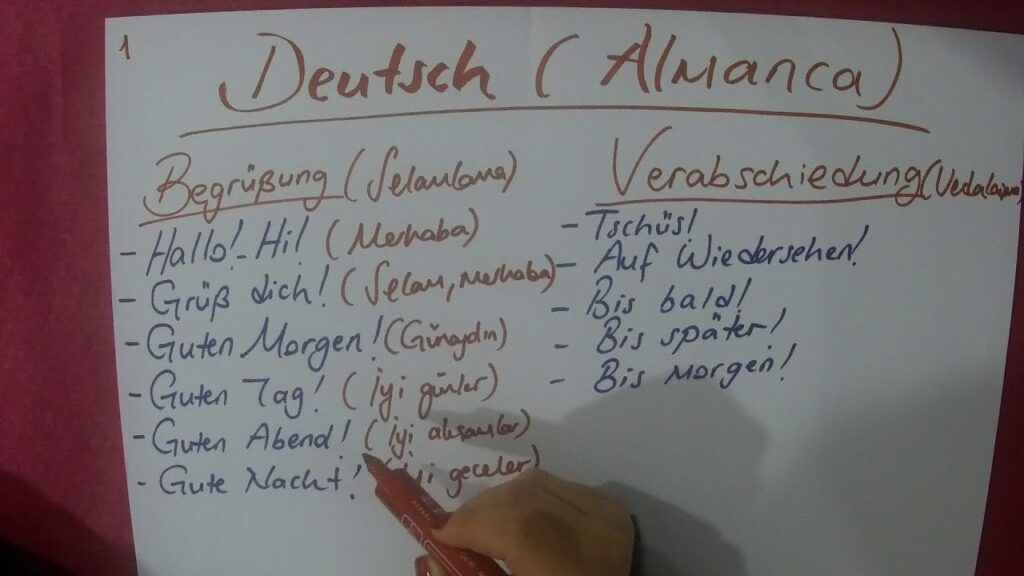 1
Deutsch (Almanca)
Begrüßung (Selamlama)
- Hallo! - Hi! (Merhaba)
- Grüß dich! (Selam, Merhaba)
- Guten Morgen! (Günaydın)
- Guten Tag! (İyi günler)
- Guten Abend! (İyi akşamlar)
- Gute Nacht! (İyi geceler)
Verabschiedung (Vedalaşma)
- Tschüs!
- Auf Wiedersehen!
- Bis bald!
- Bis später!
- Bis Morgen!